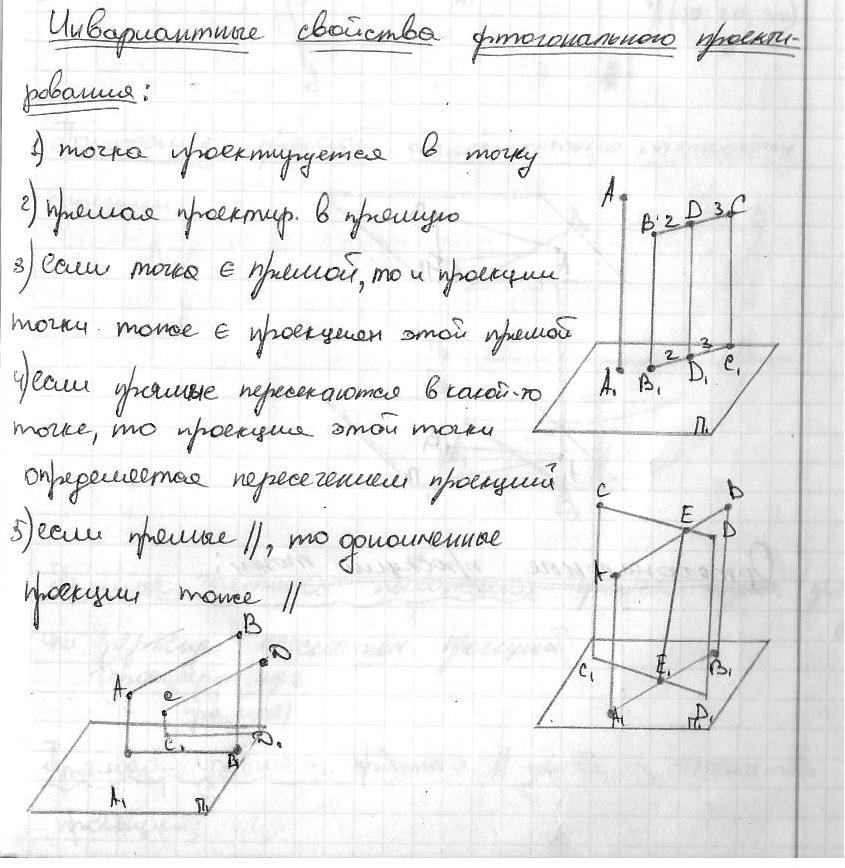 Инвариантные свойства ортогонального проекти-
рования:
1) точка проектируется в точку
2) прямая проектир. в прямую
3) если точка ∈ прямой, то и проекции
точки тоже ∈ проекциям этой прямой
4) если прямые пересекаются в какой-то
точке, то проекция этой точки
определяется пересечением проекций
5) если прямые //, то одноименные
проекции тоже //
A
B 2 D 3 C
2 3
A₁ B₁ D₁ C₁
П₁
C
E
B
D
A
C₁ E₁ B₁
A₁ П₁ D₁
B
D
A C
C₁ D₁
B₁
A₁
П₁